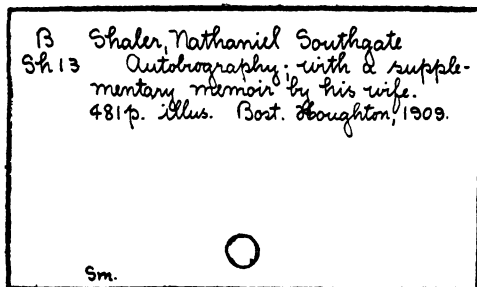 B Shaler, Nathaniel Southgate
Sh 13 Autobiography; with a supple-
mentary memoir by his wife.
481p. illus. Bost. Houghton, 1909.
Sm.